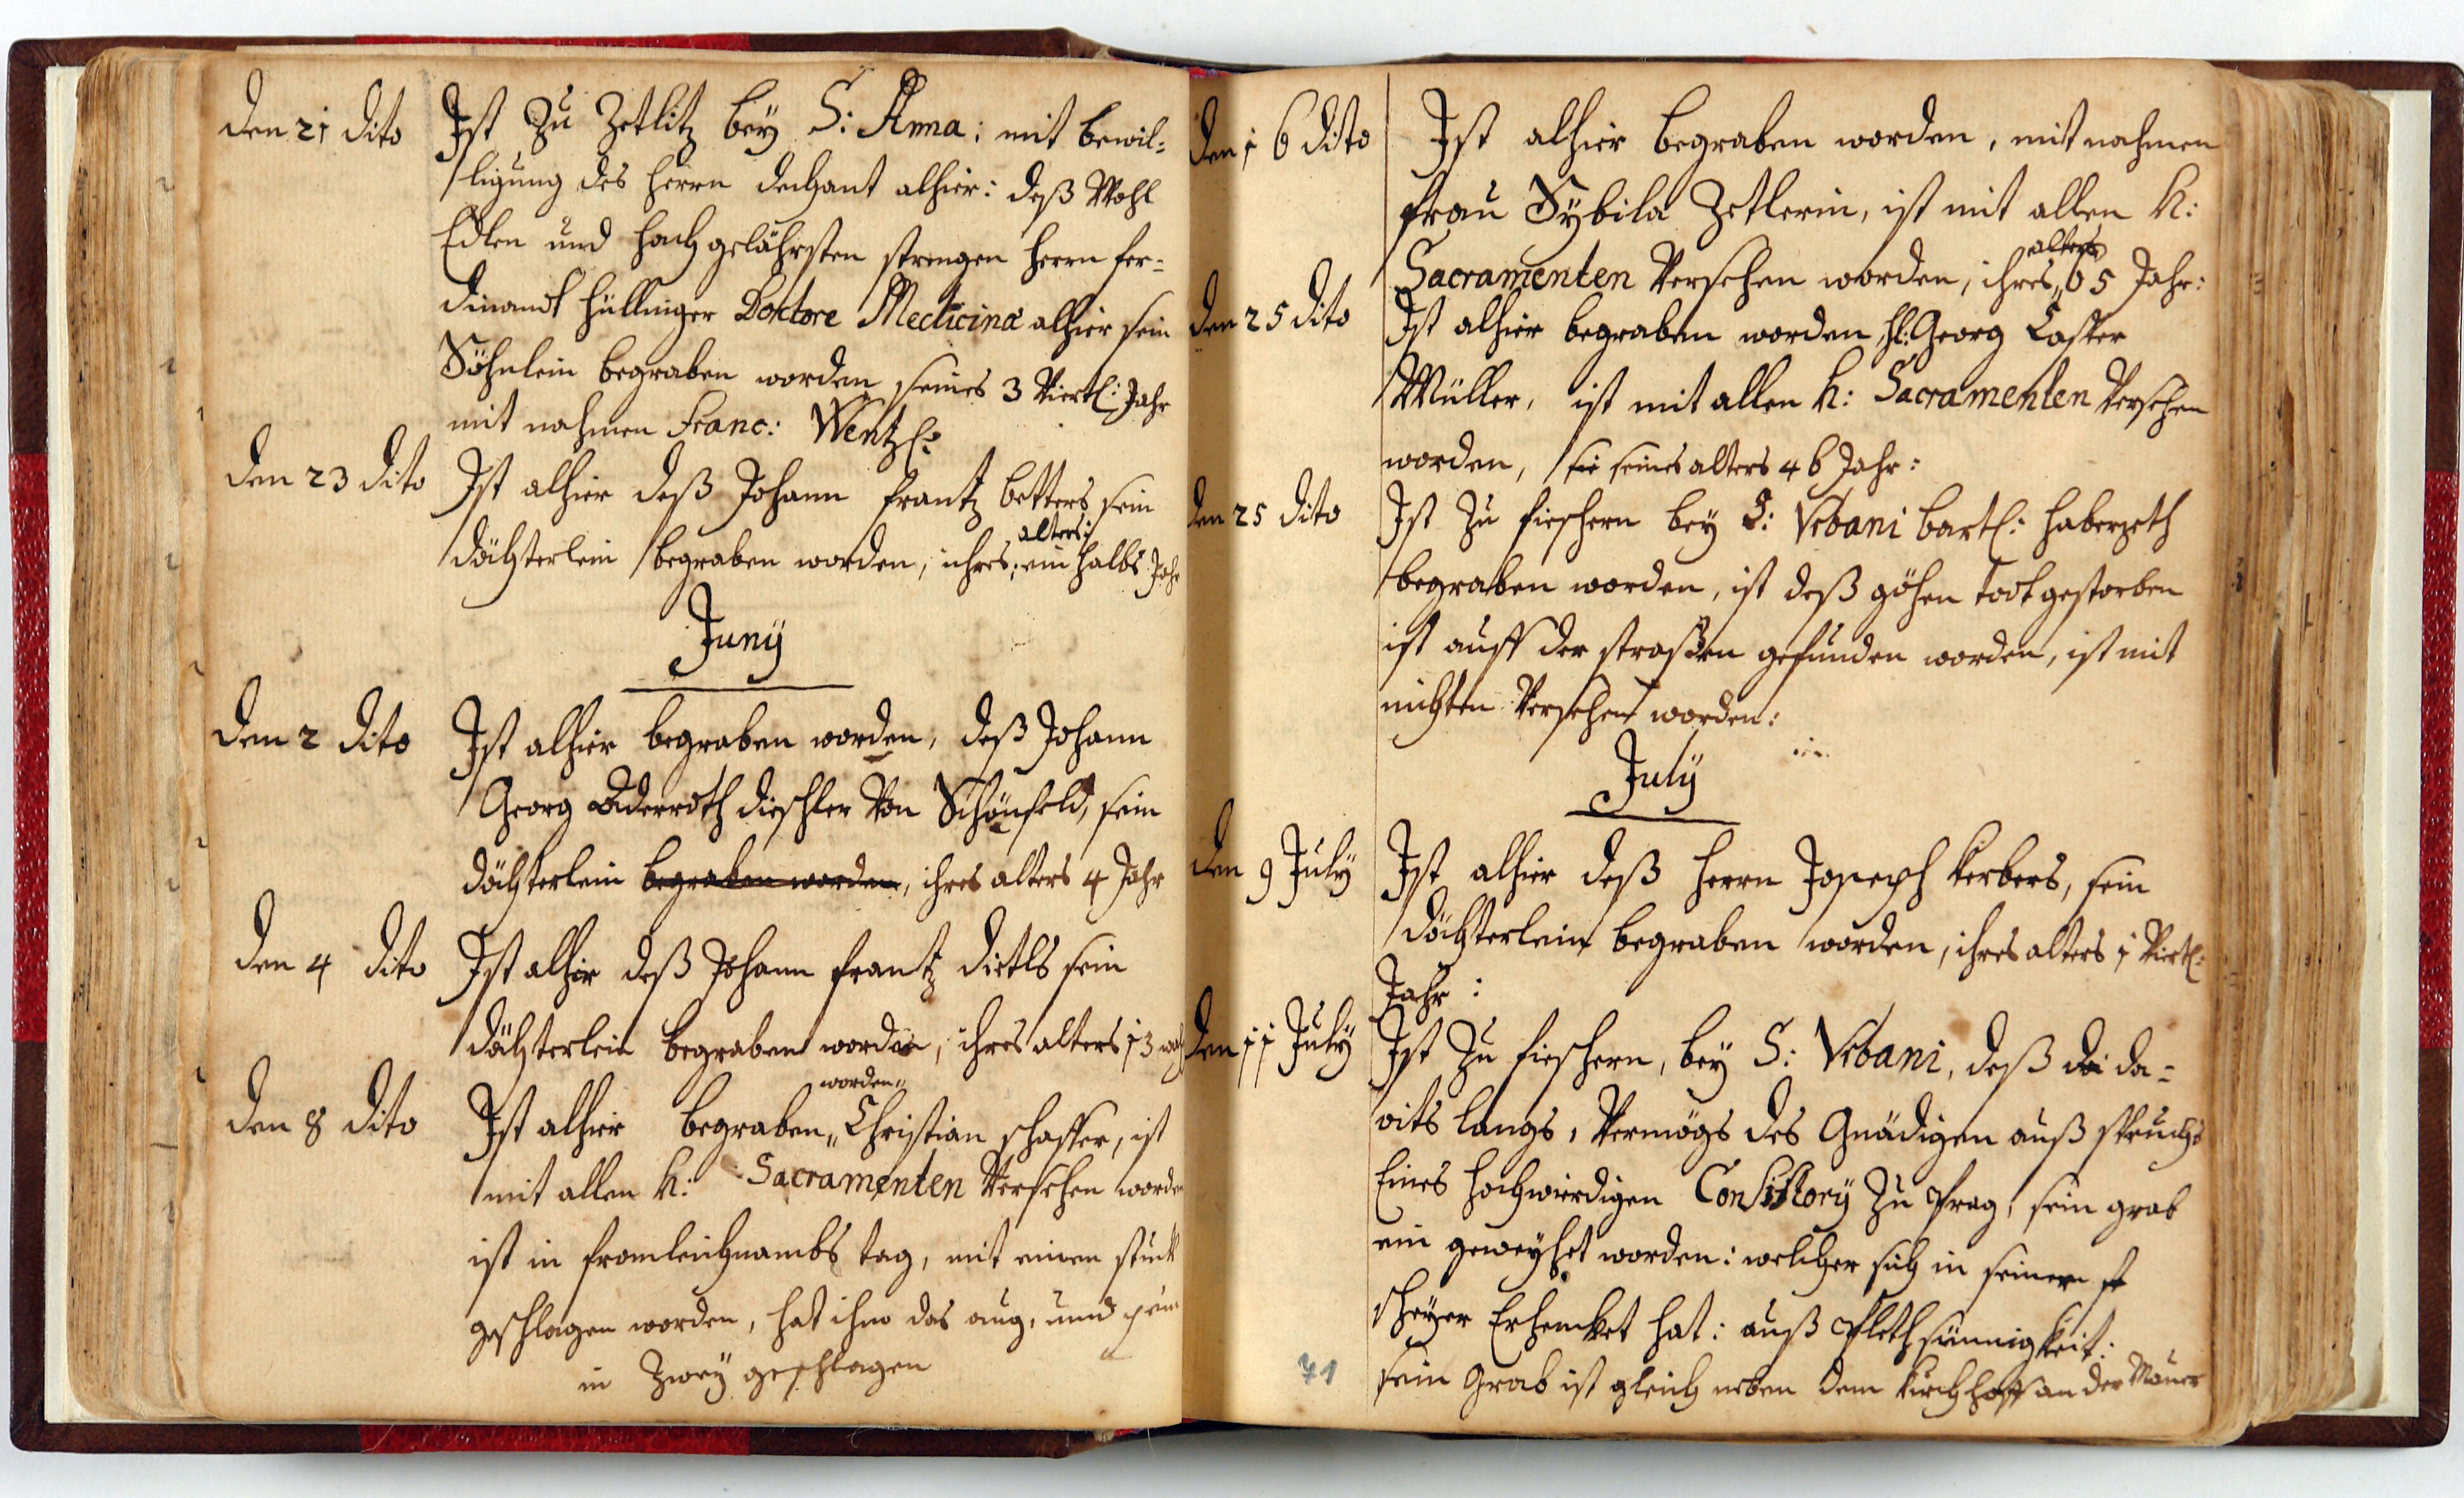 Den 21 dito Ist Zu Zetlitz bey S: Anna: mit bewil=
ligung des Herrn dechant alhier: deß Wohl
Edlen und hochgelährsten strengen Herrn fer=
dinandt Hüllinger Doktore Medicinæ alhier sein
Söhnlein begraben worden seines 3 Viertl: Jahr
mit nahmen Franc: Wentzl:
Den 23 dito Ist alhier deß Johann frantz betters sein
alters:
döchterlein begraben worden, ihres: ein halbs Jahr
Juny
Den 2 dito Ist alhier begraben worden, deß Johann
Georg dischler Von Schönfeld, sein
döchterlein begraben worden, ihres alters 4 Jahr
Den 4 dito Ist alhir deß Johann frantz dietls sein
döchterlein begraben worden, ihres alters 13 woch
worden"
Den 8 dito Ist alhier begraben" Christian schaffer, ist
mit allen h: Sacramenten Versehen worden
ist in fronleichnambs tag, mit einen stuck
geschlagen worden, hat ihm das aug, und
in Zwey geschlagen
Den 16 dito Ist alhier begraben worden, mit nahmen
frau Sybila Zetlerin, ist mit allen h:
alters
Sacramenten Versehen worden, ihres" 65 Jahr:
Den 25 dito Ist alhier begraben worden, H: Georg Casper
Müller, ist mit allen h: Sacramenten Versehen
worden, sie seines alters 46 Jahr:
Den 25 dito Ist Zu fischern bey S: Vrbani bartl: haberzeth
begraben worden, ist deß göhen todt gestorben
ist auff der straßen gefunden worden, ist mit
nichten Versehen worden:
July
Den 9 July Ist alhier deß Herrn Joseph Kerbers, sein
döchterlein begraben worden, ihres alters 1 Viertl:
Jahr:
Den 11 July Ist Zu fischern, bey S: Vrbani, deß da=
vits langs, Vermögs des Gnädigen auß spruchs
Eines hochwürdigen Consistory Zu Prag, sein grab
ein geweyhet worden: welcher sich in seinem
scheyer Erhencket hat: auß
sein Grab ist gleich neben dem Kirchhoff an der Mauer
71